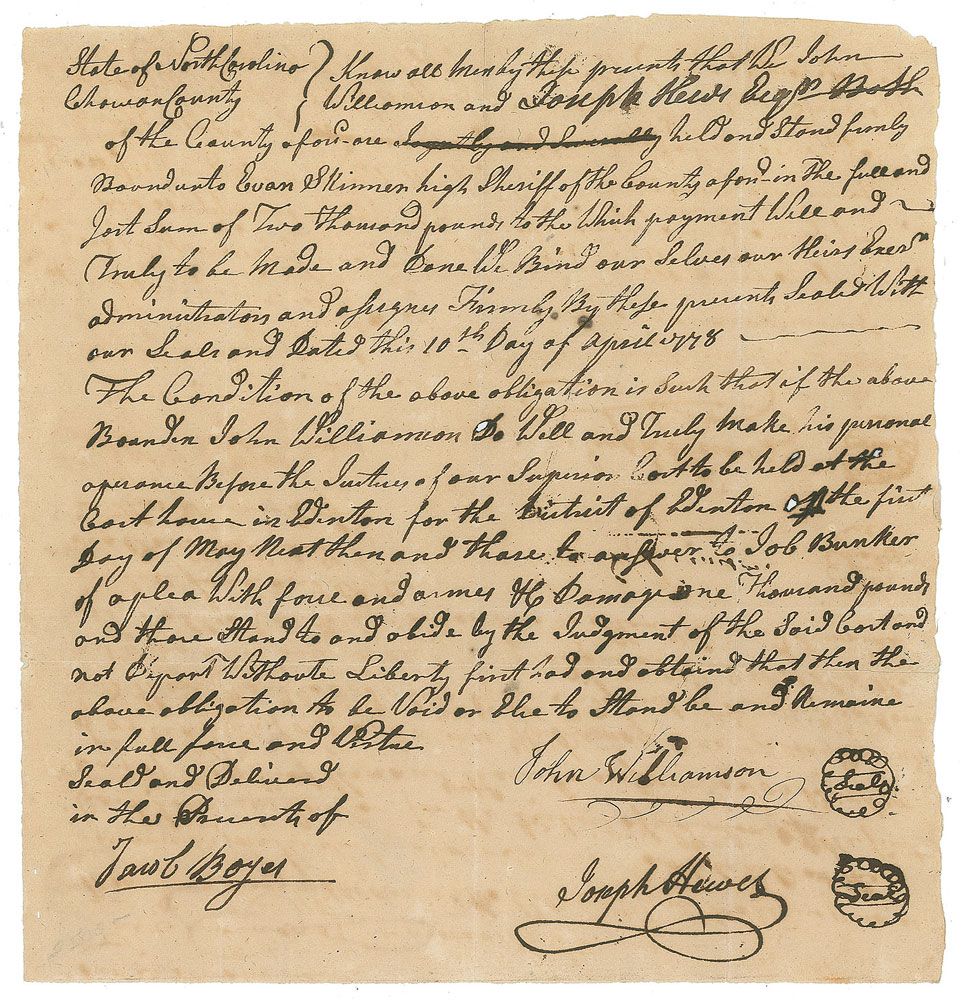 State of North Carolina } Know all Men by these presents that We John
Chowan County } Williamson and Joseph Hews Esqr. Both
of the County aforsd are Joyntly and Severally held and Stand firmly
Bound unto Evan Skinner high Sheriff of the County aforsd in the full and
Just Sum of Two thousand pounds to the Which payment Will and
Truly to be Made and Done We Bind our Selves our Heirs Exers
administrators and assignes Firmly By these presents Sealed With
our Seals and Dated this 10th Day of April 1778
The Condition of the above obligation is Such that if the above
Bounden John Williamson Do Well and Truly Make his personal
aperance Before the Justices of our Superior Cort to be held at the
Cort house in Edenton for the District of Edenton the first
Day of May Next then and thare to answer to Job Bunker
of a plea With force and armes &c Damage one Thousand pounds
and thare Stand to and abide by the Judgment of the Said Cort and
not Depart Withoute Liberty first had and obtaind that then the
above obligation to be Void or Else to Stand be and Remaine
in full force and Virtue
Seald and Deliverd
in the Presents of
John Williamson Seal
Jacob Boyes
Joseph Hewes Seal